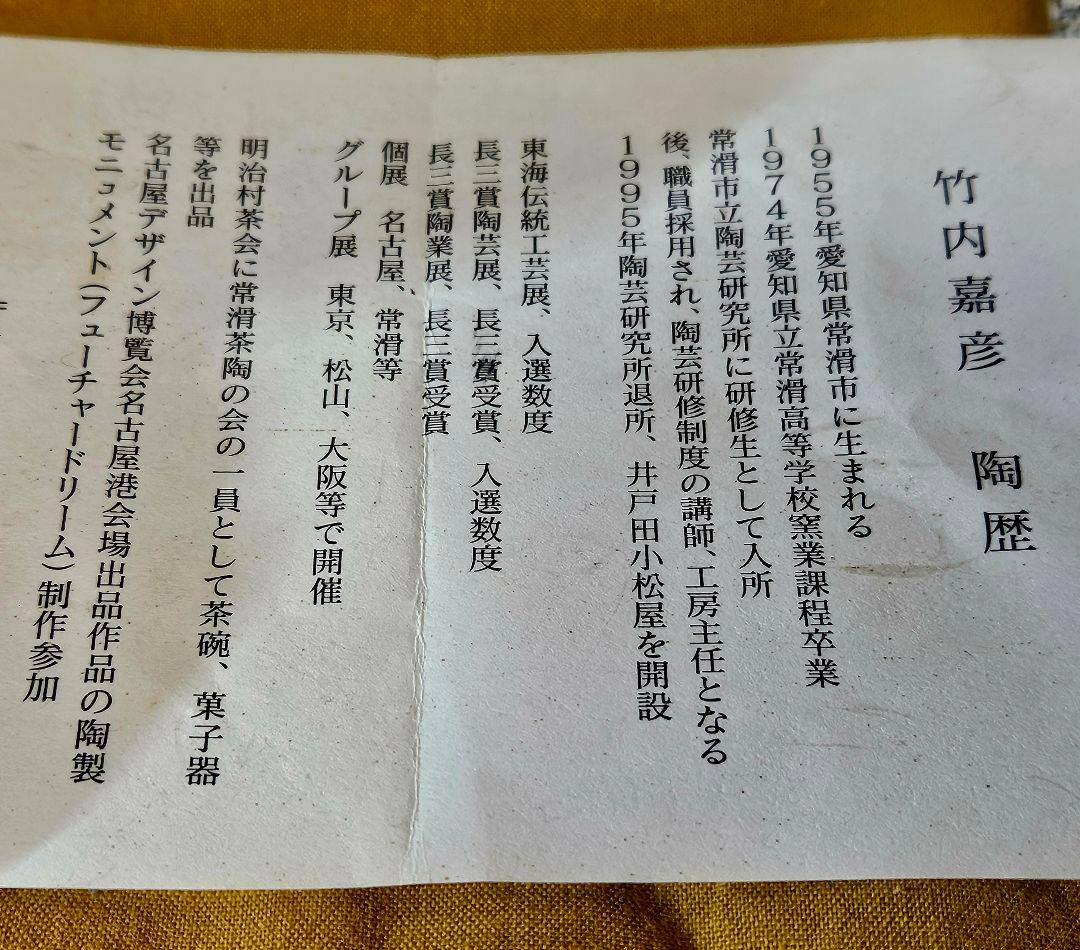 竹内嘉彦 陶歴
1955年愛知県常滑市に生まれる
1974年愛知県立常滑高等学校窯業課程卒業
常滑市立陶芸研究所に研修生として入所
後、職員採用され、陶芸研修制度の講師、工房主任となる
1995年陶芸研究所退所、井戸田小松屋を開設
東海伝統工芸展、入選数度
長三賞陶芸展、長三賞受賞、入選数度
長三賞陶業展、長三賞受賞
個展 名古屋、常滑等
グループ展 東京、松山、大阪等で開催
明治村茶会に常滑茶陶の会の一員として茶碗、菓子器
等を出品
名古屋デザイン博覧会名古屋港会場出品作品の陶製
モニュメント(フューチャードリーム)制作参加